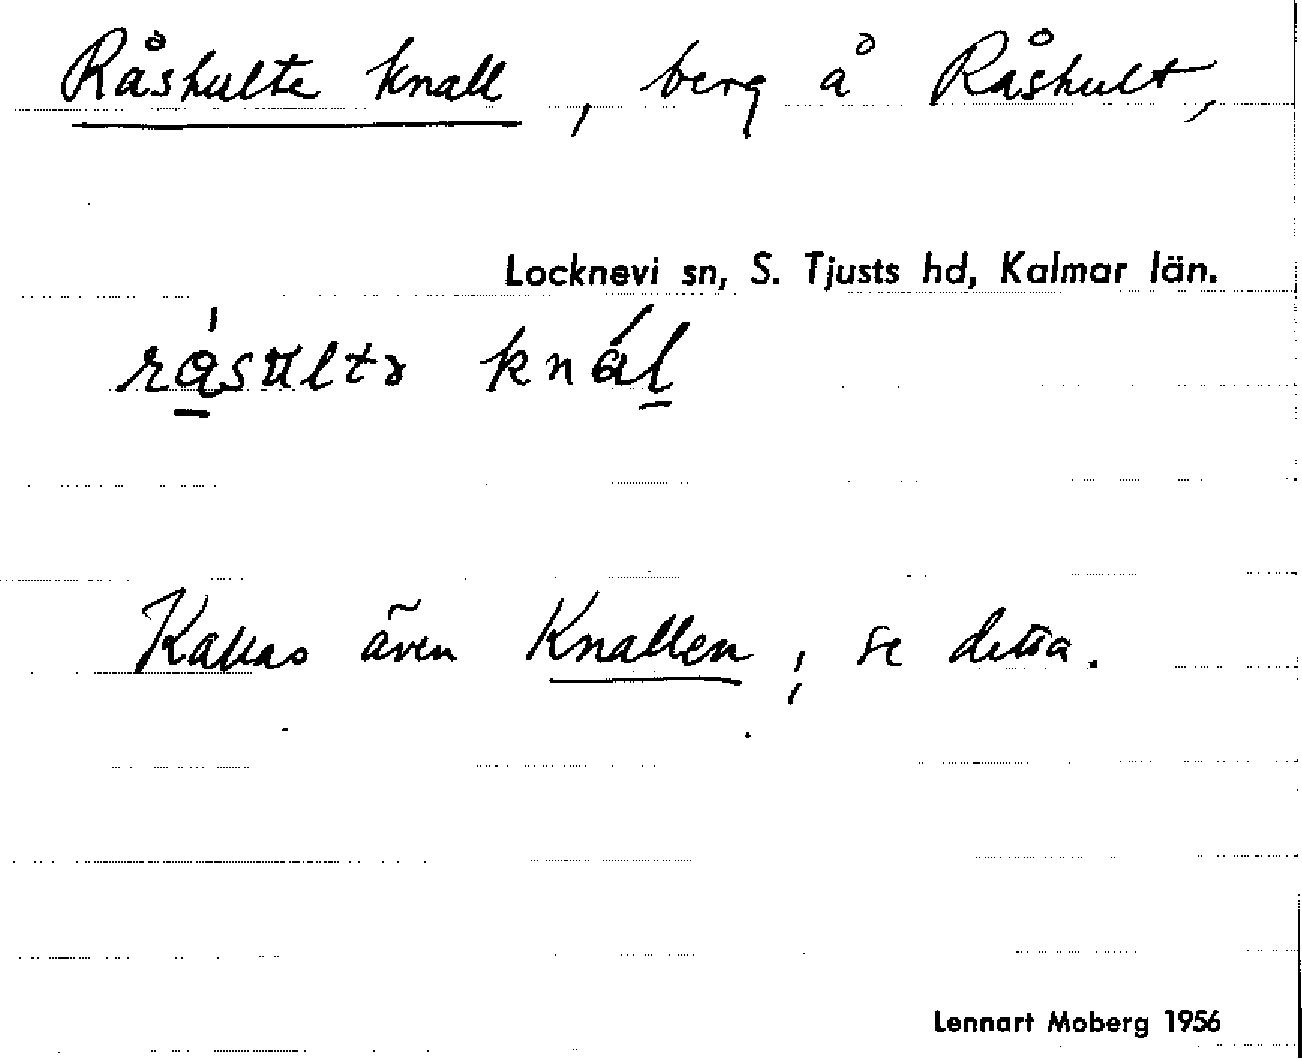 Råshulte knall, berg å Råshult,
Locknevi sn, S. Tjusts hd, Kalmar län.
knál
Kallas även Knallen; se detta.
Lennart Moberg 1956